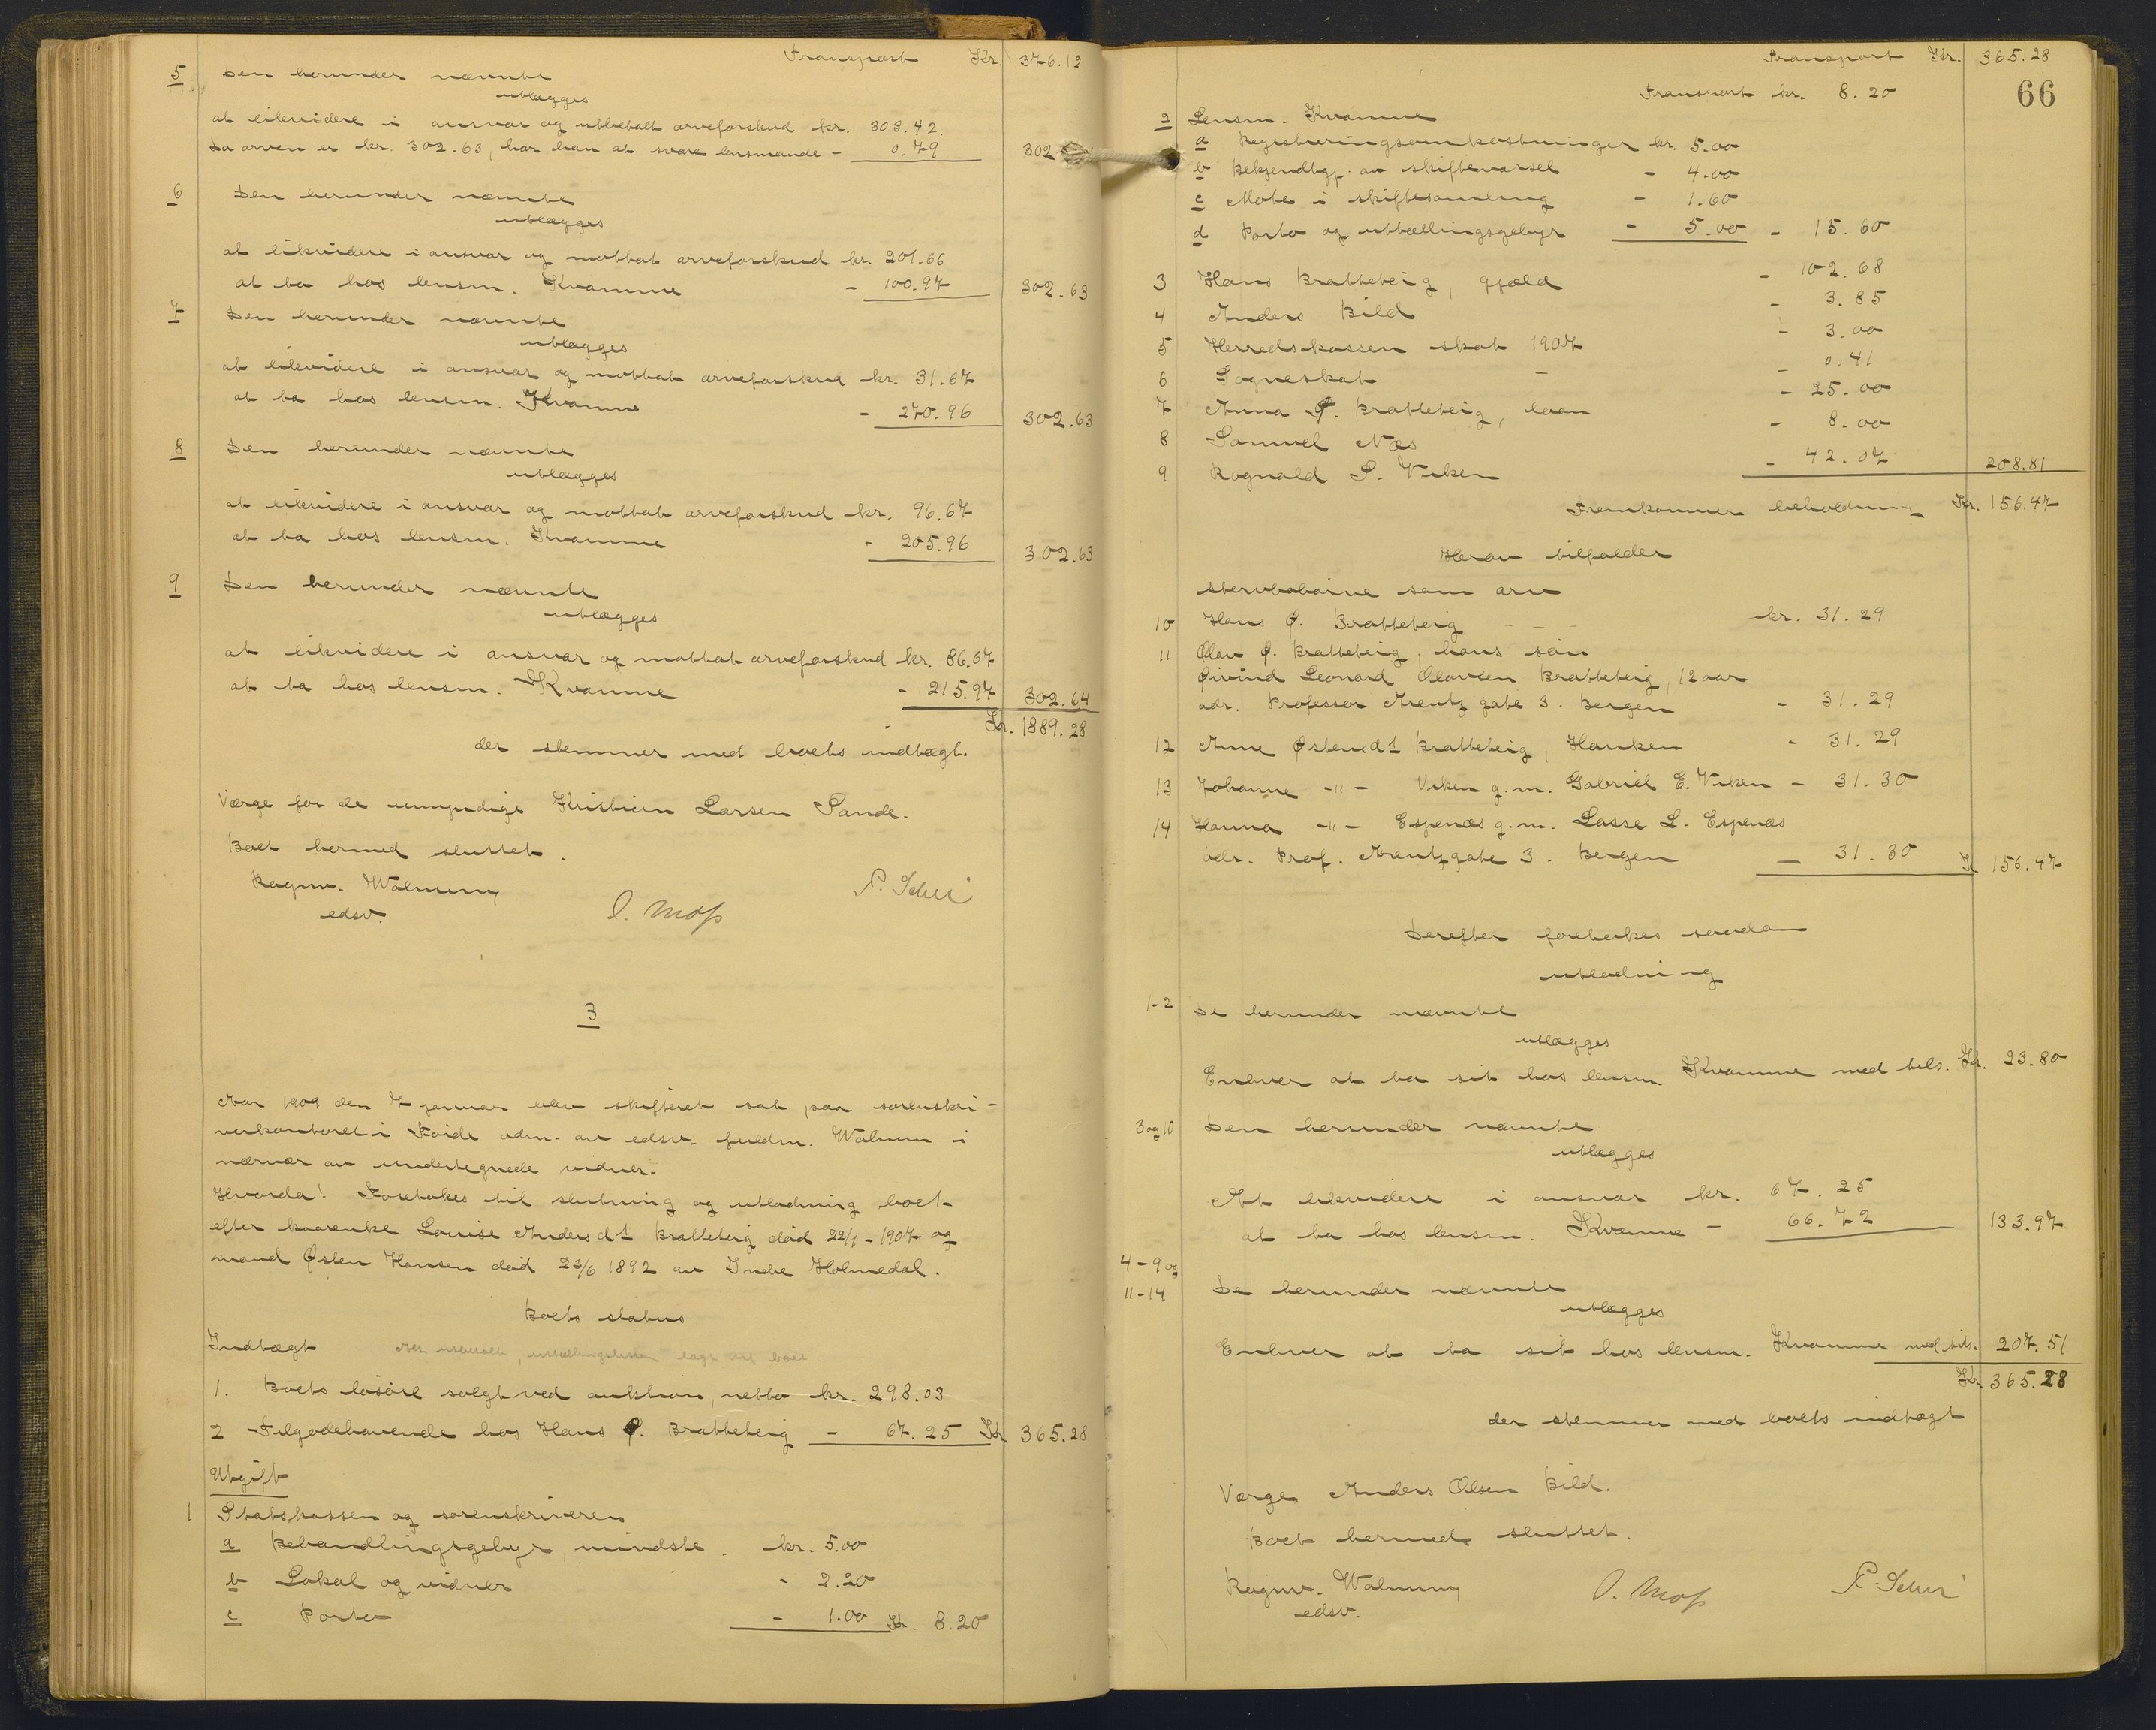 Transport Kr. 376.12
5 Den herunder nævnte
utlægges
at likvidere i ansvar og utbetalt arveforskud kr. 303.42.
Da arven er kr. 302.63, har han at svare lensmande - 0.79 302
6 Den herunder nævnte
utlægges
at likvidere i ansvar og mottat arveforskud kr. 201.66
at ta hos lensm. Kvamme - 100.97 302.63
7 Den herunder nævnte
utlægges
at likvidere i ansvar og mottat arveforskud kr. 31.67
at ta hos lensm. Kvamme - 270.96 302.63
8 Den herunder nævnte
utlægges
at likvidere i ansvar og mottat arveforskud kr. 96.67
at ta hos lensm. Kvamme - 205.96 302.63
9 Den herunder nævnte
utlægges
at likvidere i ansvar og mottat arveforskud kr. 86.67
at ta hos lensm. Kvamme - 215.97 302.64
Kr. 1889.28
der stemmer med boets indtægt.
Værge for de umyndige Kristian Larsen Sande.
Boet hermed sluttet.
Ragnv. Walnum
edsv.
O. Moss
3
Aar 1909 den 7 januar blev skifteret sat paa sorenskri-
verkontoret i Førde adm. av edsv. fuldm. Walnum i
nærvær av undertegnede vidner.
Hvorda! Foretokes til slutning og utlodning boet
efter kaarenke Louise Andersdt Bratteteig død 22/1-1907 og
mand Østen Hansen død 23/6 1892 av Indre Holmedal.
Boets status
Indtægt Alt utbetalt, utlodningslisten lagt til boet
1. Boets løsøre solgt ved auktion, netto kr. 298.03
2 Tilgodehavende hos Hans Ø. Bratteteig - 67.25 Kr 365.28
Utgift
1 Statskassen og sorenskriveren
a Behandlingsgebyr, mindste. kr. 5.00
b Lokal og vidner - 2.20
c Porto - 1.00 Kr. 8.20
Transport Kr. 365.28
66
Transport kr. 8.20
2 Lensm. Kvamme
a Registreringsomkostninger kr. 5.00
b Bekjendtgj. av skiftevarsel - 4.00
c Møte i skiftesamling - 1.60
d Porto og uttællingsgebyr - 5.00 - 15.60
3 Hans Bratteteig, gjæld - 102.68
4 Anders Bild - 3.85
5 Herredskassen skat 1907 - 3.00
6 Sogneskat - - 0.41
7 Anna Ø. Bratteteig, laan - 25.00
8 Samuel Næs - 8.00
9 Rognald S. Viken - 42.07 208.81
Fremkommer beholdning Kr. 156.47
Herav tilfalder
stervboboerne som arv
10 Hans Ø. Bratteteig - - - kr. 31.29
11 Olav Ø. Bratteteig, hans søn
Øivind Leonard Olavsen Bratteteig, 12 aar
adr. Professor Arentz gate 3. Bergen - 31.29
12 Anne Østensdt Bratteteig, Hauken - 31.29
13 Johanne -"- Viken g.m. Gabriel E. Viken - 31.30
14 Hanna -"- Espenæs g.m. Lasse L. Espenæs
adr. Prof. Arentzgate 3. Bergen - 31.30 Kr 156.47
Derefter foretokes saadan
utlodning
1-2 De herunder nævnte
utlægges
Enhver at ta sit hos lensm. Kvamme med tils. Kr. 23.80
3 og 10 Den herunder nævnte
utlægges
At likvidere i ansvar kr. 67.25
at ta hos lensm. Kvamme - 66.72 133.97
4-9 og
11-14 De herunder nævnte
utlægges
Enhver at ta sit hos lensm. Kvamme med tils. 207.51
Kr 365.28
der stemmer med boets indtægt
Værge Anders Olsen Bild.
Boet hermed sluttet.
Ragnv. Walnum
edsv.
O. Moss